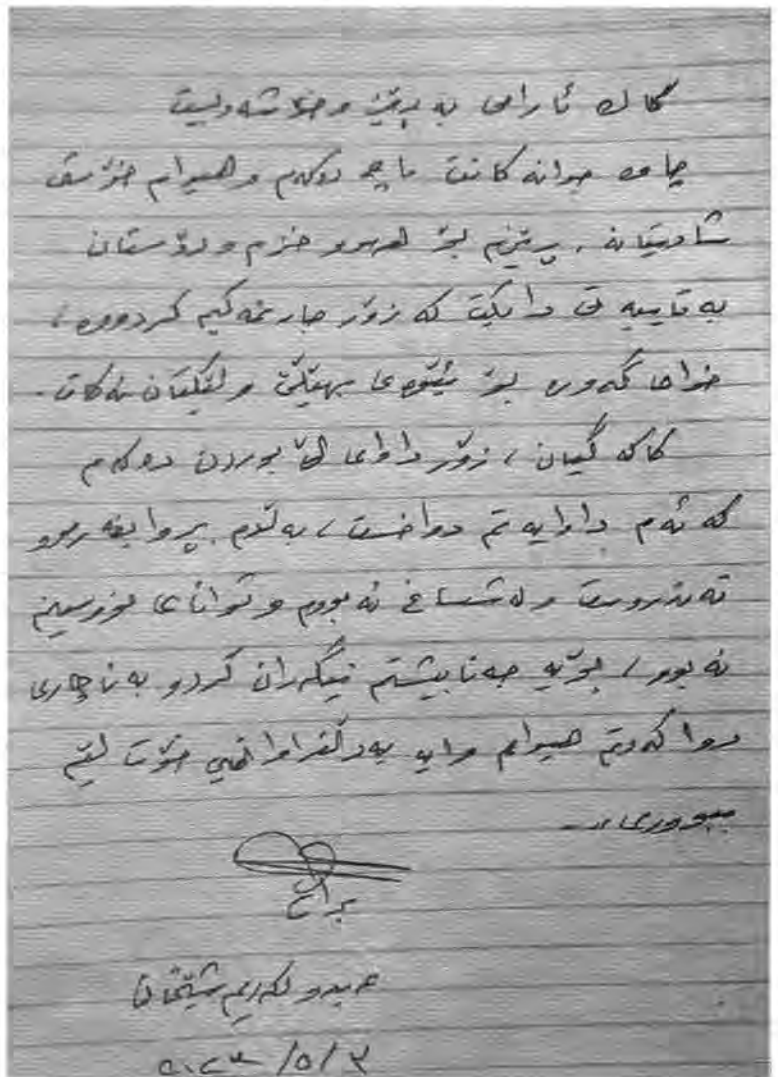 کاک ئارامی بە ڕێز و خۆشەویست
چاوە جوانەکانت ماچ دەکەم و هیوام خۆشی
شادیتانە. ڕێزم بۆ هەموو خزم و دۆستان
بە تایبەتی دایکت کە زۆر جار نمەکیم کردووە،
خوای گەورە بۆ ئێوەی بهێڵێ و لێکتان نەکات.
کاکە گیان، زۆر داوای لێ بوردن دەکەم
کە ئەم داوایەتم دواخست، بەڵام بڕوا بفەرموو
تەندروست و لەشساغ نەبووم و توانای نوسینم
نەبوو، بۆیە جەنابیشتم نیگەران کرد و بە ناچاری
دواکەوتم هیوام وایە بەدڵفراوانیی خۆت لێم
ببووری..
برات
عەبدولکەریم شێخانی
٢٠٢٣/٥/٢